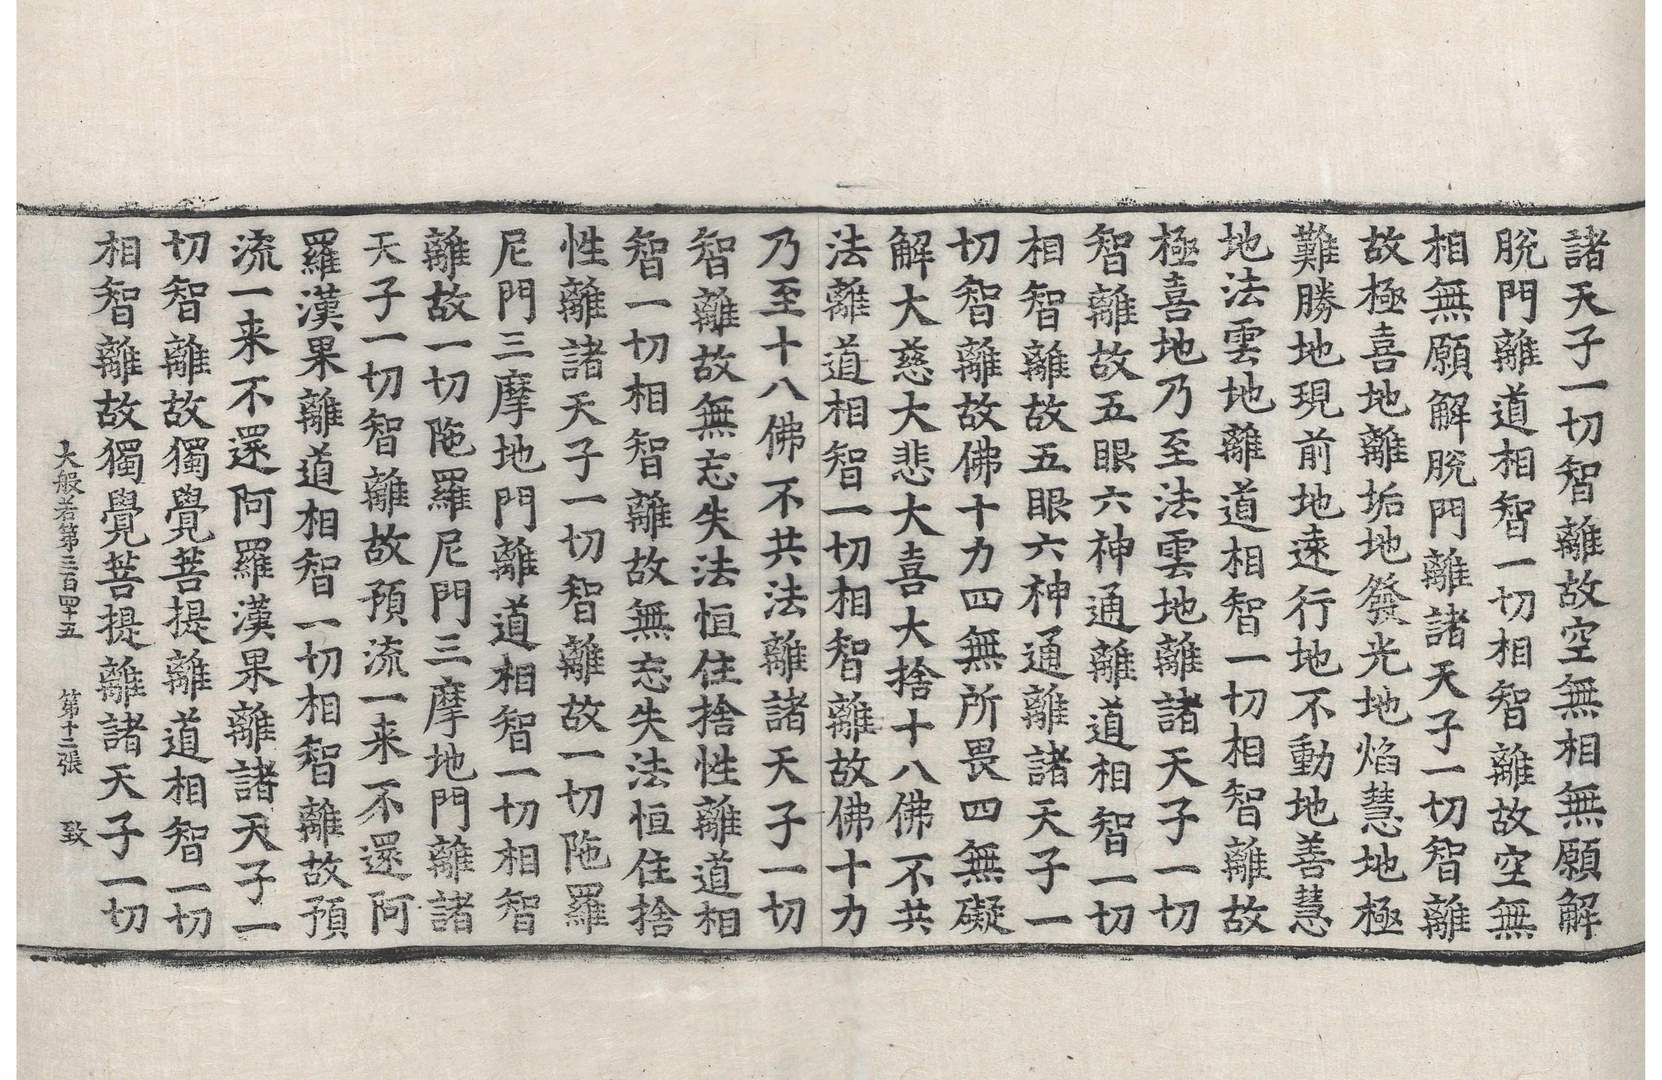 諸天子一切智離故空無相無願解
脫門離道相智一切相智離故空無
相無願解脫門離諸天子一切智離
故極喜地離垢地發光地焰慧地極
難勝地現前地遠行地不動地善慧
地法雲地離道相智一切相智離故
極喜地乃至法雲地離諸天子一切
智離故五眼六神通離道相智一切
相智離故五眼六神通離諸天子一
切智離故佛十力四無所畏四無礙
解大慈大悲大喜大捨十八佛不共
法離道相智一切相智離故佛十力
乃至十八佛不共法離諸天子一切
智離故無忘失法恒住捨性離道相
智一切相智離故無忘失法恒住捨
性離諸天子一切智離故一切陁羅
尼門三摩地門離道相智一切相智
離故一切陁羅尼門三摩地門離諸
天子一切智離故預流一来不還阿
羅漢果離道相智一切相智離故預
流一来不還阿羅漢果離諸天子一
切智離故獨覺菩提離道相智一切
相智離故獨覺菩提離諸天子一切
大般若第三百四十五 第十二張 致